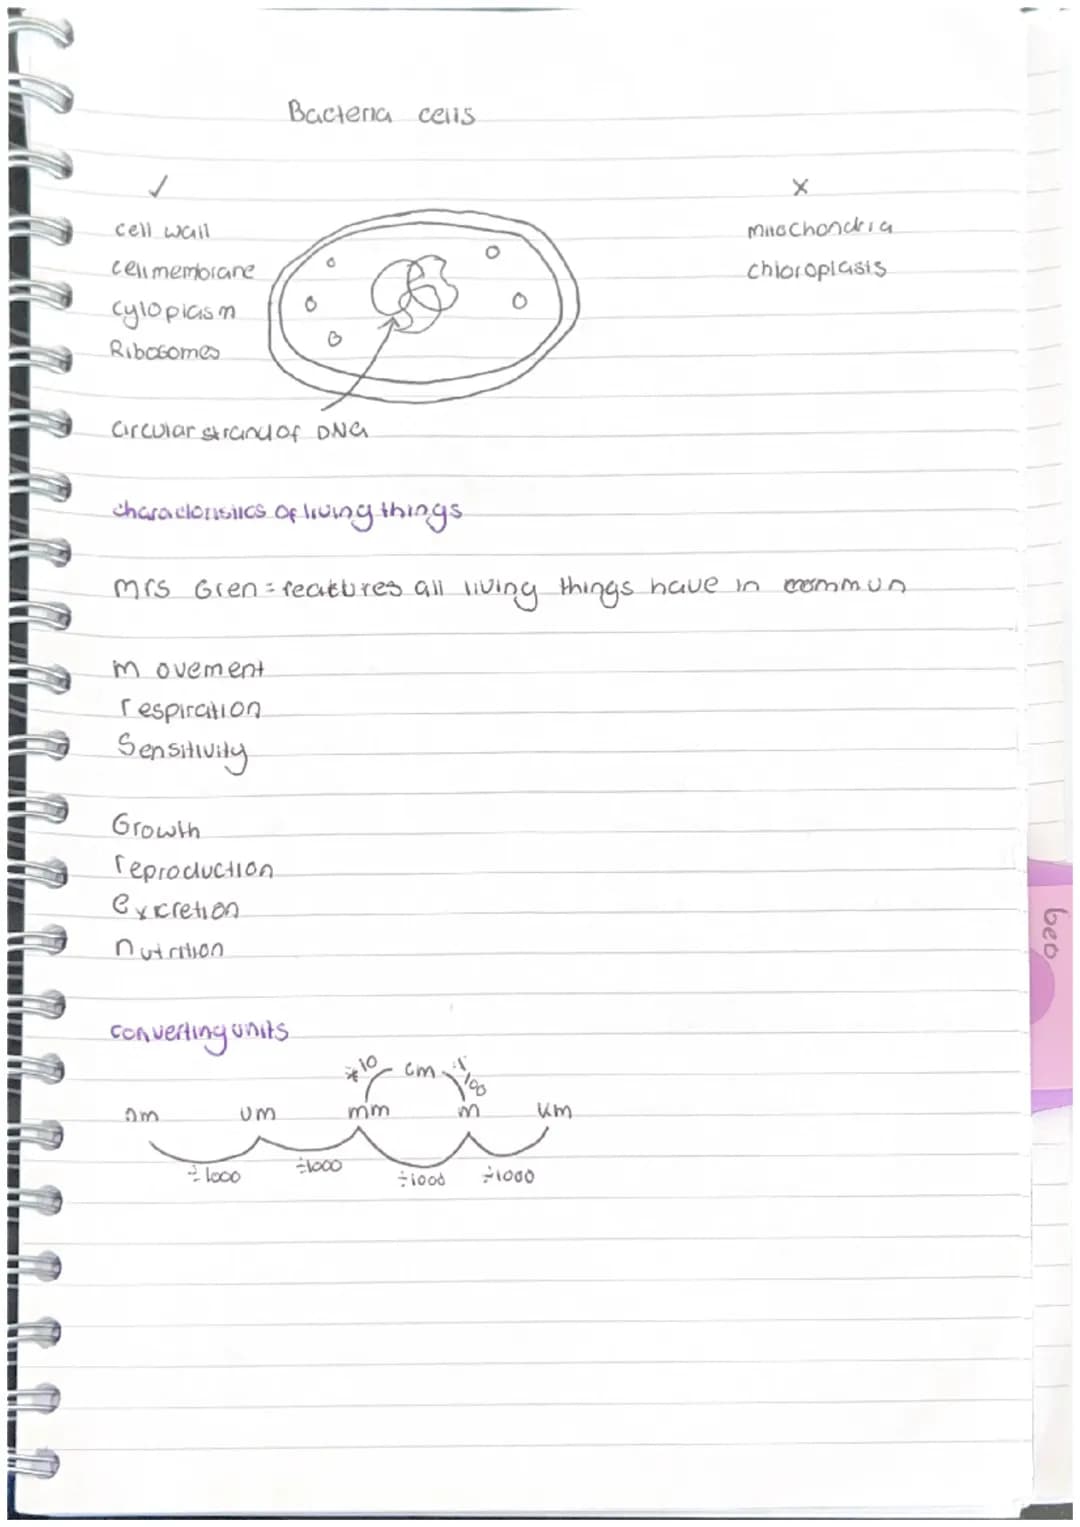 Bacteria cells
✓
x
cell wall
mitochondria
cell membrane
chloroplasts
cytoplasm
Ribosomes
Circular strand of DNA
characteristics of living things
mrs Gren = features all living things have in commun
movement
respiration
Sensitivity
Growth
reproduction
excretion
nutrition
converting units
÷10 cm ÷100
nm um mm m km
÷1000 ÷1000 ÷1000 ÷1000
geo